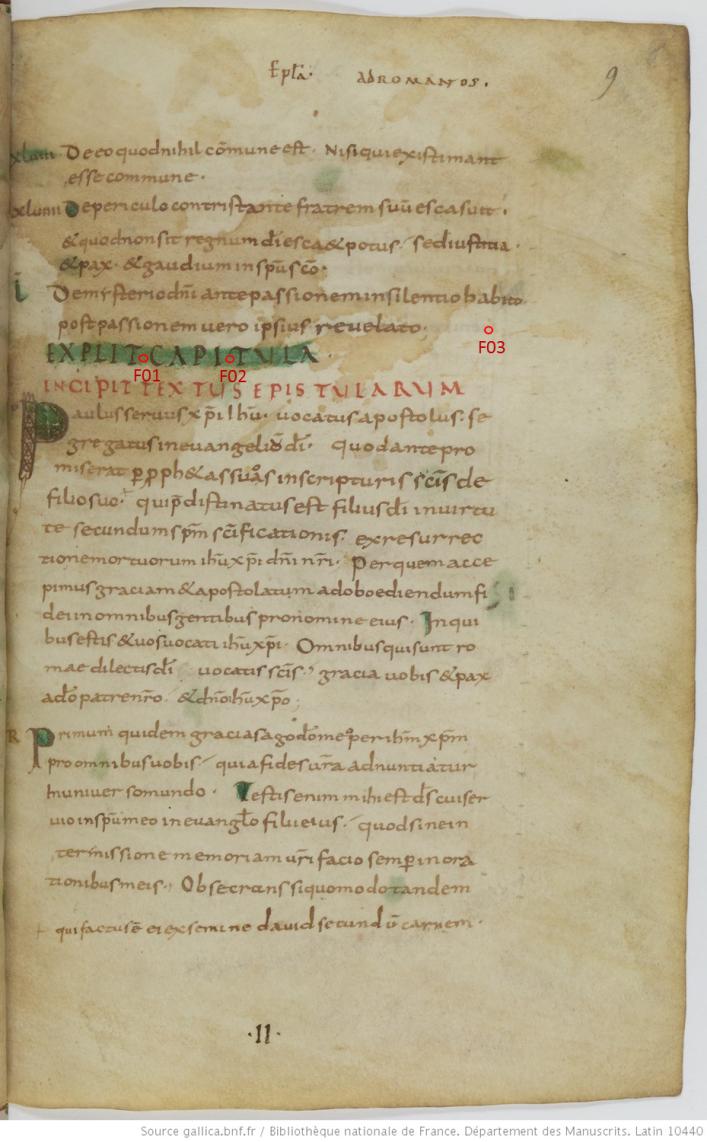 Epła· AD ROMANOS.
9
xlvii De eo quod nihil cōmune est· Nisi qui existimant
esse commune·
xlviii De periculo contristante fratrem suū esca sua·
& quod non sit regnum dī esca & potus· sed iustitia·
& pax· & gaudium in spū scō·
De mysterio dnī ante passionem in silentio habito
post passionem vero ipsius revelato·
EXPLIT CAPITULA
INCIPIT TEXTUS EPISTULARUM
Paulus servus xp̄i ihū· vocatus apostolus· se
gregatus in evangeliō dī· quod ante pro
miserat per pph&as suos in scripturis scīs de
filio suo· qui p̄distinatus est filius dī in virtu
te secundum spm̄ scīficationis· ex resurrec
tione mortuorum ihū xp̄i dnī nrī· Per quem acce
pimus graciam & apostolatum ad oboediendum fi
dei in omnibus gentibus pro nomine eius· In qui
bus estis & vos vocati ihū xp̄i· Omnibus qui sunt ro
mae dilectis dī vocatis scīs· gracia vobis & pax
a dō patre nrō· & dnō ihū xp̄o
R Primum quidem gracias ago dō meo per ihm̄ xp̄m
pro omnibus vobis· quia fides vrā adnuntiatur
In universo mundo· Testis enim mihi est ds̄ cui ser
vio in spū meo in evanglō filii eius· quod sine in
termissione memoriam vrī facio semp̄ in ora
tionibus meis· Obsecrans si quomodo tandem
qui factus ē ei ex semine david secundū carnem·
·II·
F01
F02
F03
Source gallica.bnf.fr / Bibliothèque nationale de France. Département des Manuscrits. Latin 10440